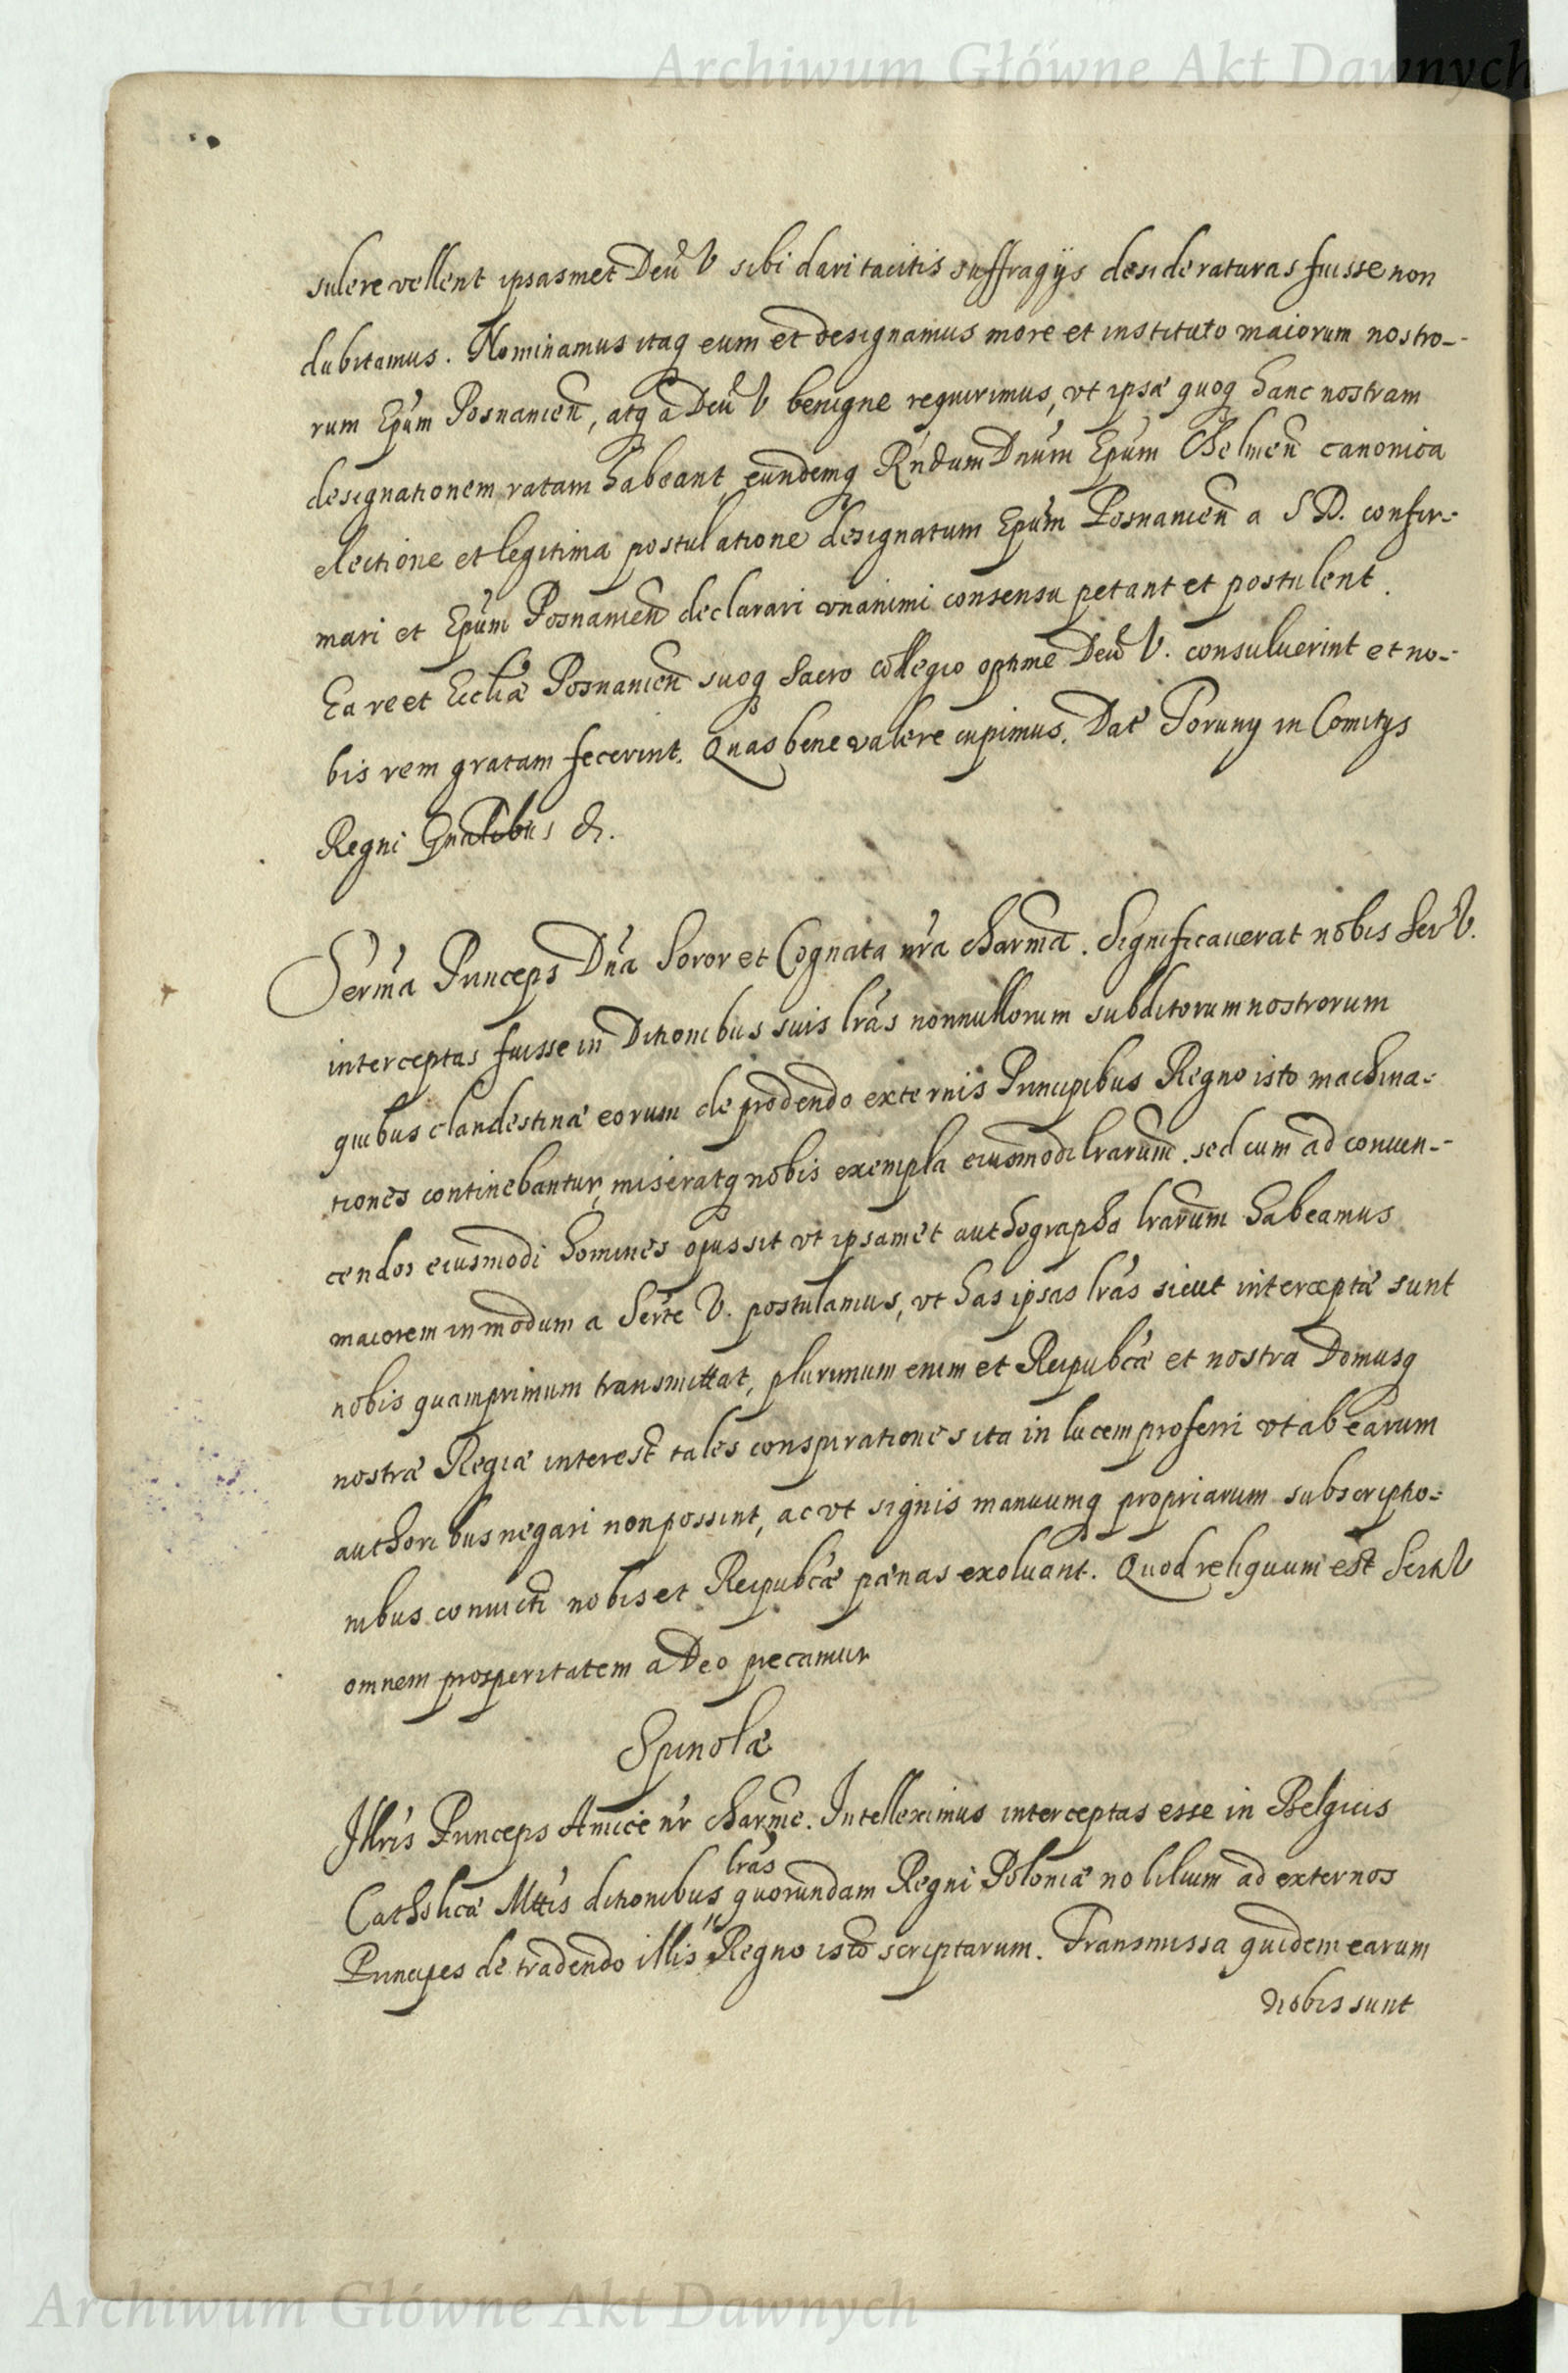 Archiwum Główne Akt Dawnych
sulere vellent ipsasmet Deũ V sibi dari tacitis suffragijs desideraturas fuisse non
dubitamus. Nominamus itaq eum et designamus more et instituto maiorum nostro-
rum Epũm Posnanień, atq a Deũ V benigne requirimus, vt ipsæ quoq hanc nostram
designationem ratam habeant, eundemq Rńdum Dnũm Epũm Chelmeń canonica
electione et legitima postulatione designatum Epũm Posnanień a S D. confir-
mari et Epũm Posnanień declarari vnanimi consensu petant et postulent.
Ea re et Eccliæ Posnanień suoq Sacro collegio optime Deũ V. consuluerint et no-
bis rem gratam fecerint. Quas bene valere cupimus. Dat Toruny in Comitijs
Regni Gnalibus &.
Serm̃a Princeps Dña Soror et Cognata nr̃a charm̃a. Significauerat nobis Ser V.
interceptas fuisse in Ditionibus suis lr̃as nonnullorum subditorum nostrorum
quibus clandestinæ eorum de prodendo externis Principibus Regno isto machina-
tiones continebantur, miseratq nobis exempla eiusmodi lrarum. sed cum ad conuin-
cendos eiusmodi homines opus sit vt ipsamet authographa lrarum habeamus
maiorem in modum a Serte V. postulamus, vt has ipsas lr̃as sicut interceptæ sunt
nobis quamprimum transmittat, plurimum enim et Reipubcæ et nostra Domusq
nostræ Regiæ interest tales conspirationes ita in lucem proferri vt ab earum
authoribus negari non possint, ac vt signis manuumq propriarum subscriptio-
nibus conuicti nobis et Reipubcæ pænas exoluant. Quod reliquum est Serti V
omnem prosperitatem a Deo precamur
Spinolæ
Illris Princeps Amice nr̃ charme. Intelleximus interceptas esse in Belgicis
Catholicæ Mttis ditionibus lr̃as quorundam Regni Poloniæ nobilium ad externos
Principes de tradendo illis Regno isto scriptarum. Transmissa quidem earum
nobis sunt
Archiwum Główne Akt Dawnych